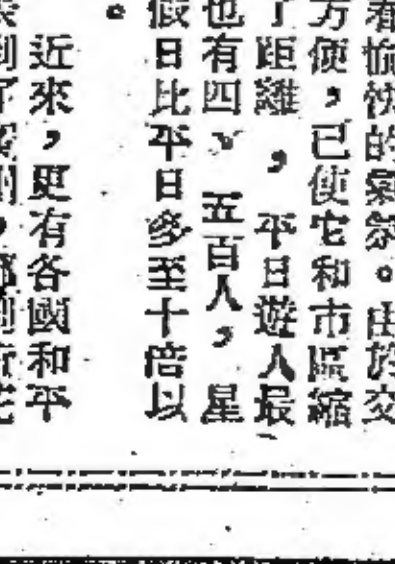 春愉快的氣氛。由於交
方便，已使它和市區縮
了距離，平日遊人最
也有四、五百人，星
假日比平日多至十倍以
。
近來，更有各國和平